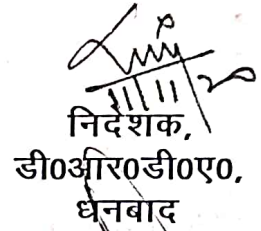 निदेशक,
डी0आर0डी0ए0,
धनबाद